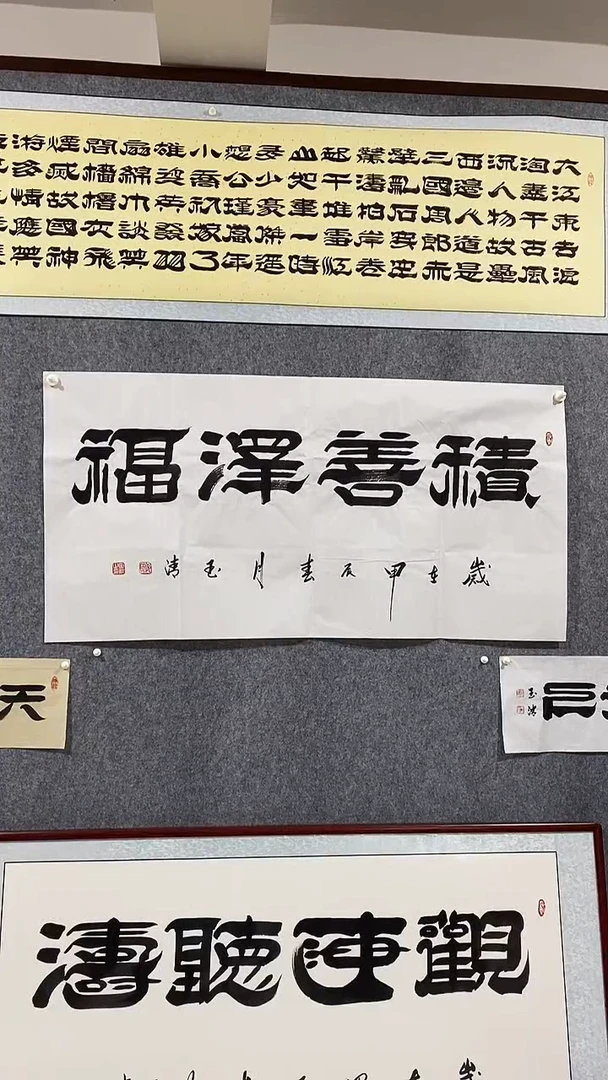 大江東去浪
淘盡千古風
流人物故壘
西邊人道是
三國周郎赤
壁亂石穿空
驚濤拍岸卷
起千堆雪江
山如畫一時
多少豪傑遥
想公瑾當年
小喬初嫁了
雄姿英發羽
扇綸巾談笑
間檣櫓灰飛
煙滅故國神
游多情應笑
積善澤福
歲在甲辰春月玉清
天
玉清
觀海聽濤